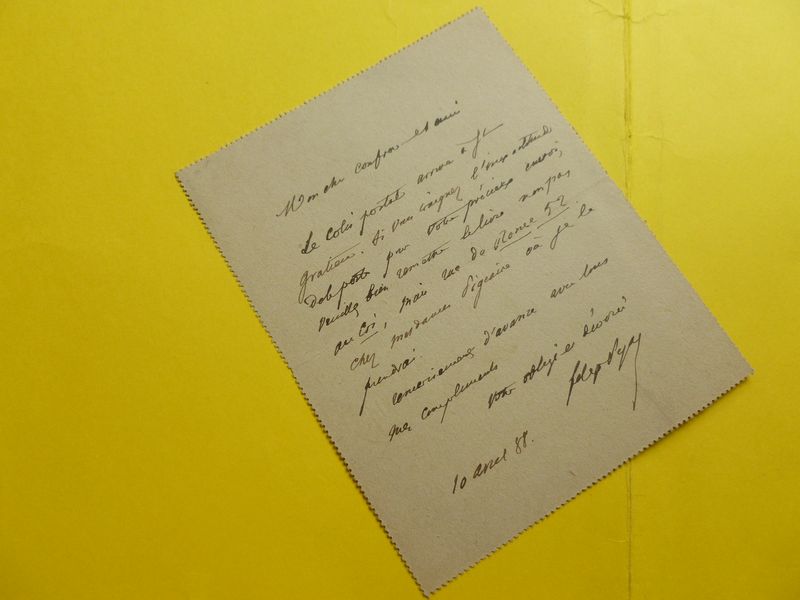 Mon cher confrere et ami
Le colis postal arrive a St
Gratien. Si vous craignez l'inexactitude
de la poste pour votre précieux envoi,
veuillez bien remettre le livre non pas
au Coi, mais rue de Rome 52
chez mesdames où je le
prendrai.
remerciements d'avance avec tous
mes compliments
Votre obligé et dévoué
10 avril 88.